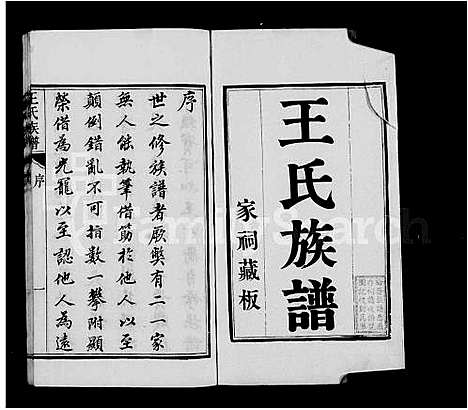 王氏族譜
家祠藏板
序
世之修族譜者厥弊有二一家
無人能執筆借筯於他人以至
顛倒錯亂不可指數一攀附顯
榮借為光寵以至認他人為遠
王氏族譜
序
一
FamilySearch